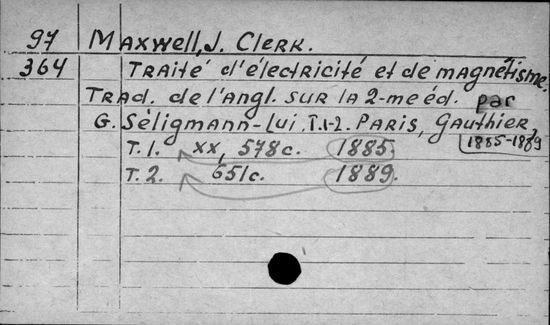 97 Maxwell, J. Clerk.
364 Traité d'électricité et de magnétisme.
Trad. de l'angl. sur la 2-me éd. par
G. Séligmann-Lui. T.1-2. Paris, Gauthier,
1885-1889
T. 1. xx, 578c. 1885
T. 2. 651c. 1889.